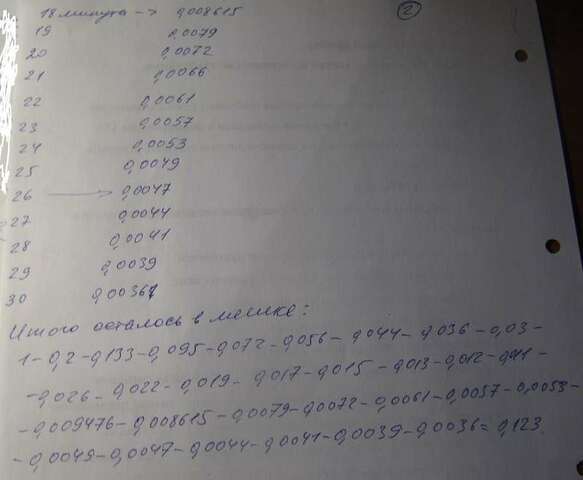 18 минута -> 0,008615
2
19 0,0079
20 0,0072
21 0,0066
22 0,0061
23 0,0057
24 0,0053
25 0,0049
26 -> 0,0047
27 0,0044
28 0,0041
29 0,0039
30 0,00361
Итого осталось в мешке:
1-0,2-0,133-0,095-0,072-0,056-0,044-0,036-0,03-
-0,026-0,022-0,019-0,017-0,015-0,013-0,012-0,011-
-0,009476-0,008615-0,0079-0,0072-0,0061-0,0057-0,0053-
-0,0049-0,0047-0,0044-0,0041-0,0039-0,0036=0,123